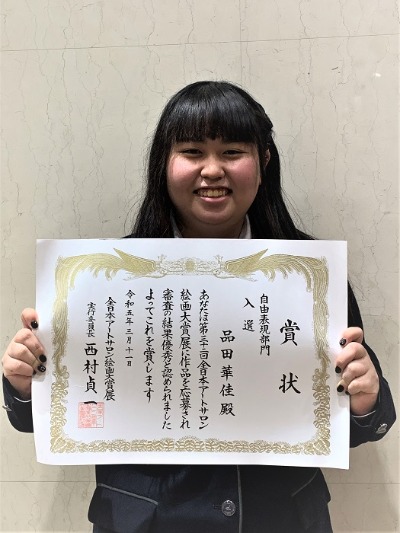 賞状
自由表現部門
入選
品田華佳殿
あなたは第三十二回全日本アートサロン
絵画大賞展に作品を応募され
審査の結果優秀と認められました
よってこれを賞します
令和五年三月十一日
全日本アートサロン絵画大賞展
実行委員長 西村貞一